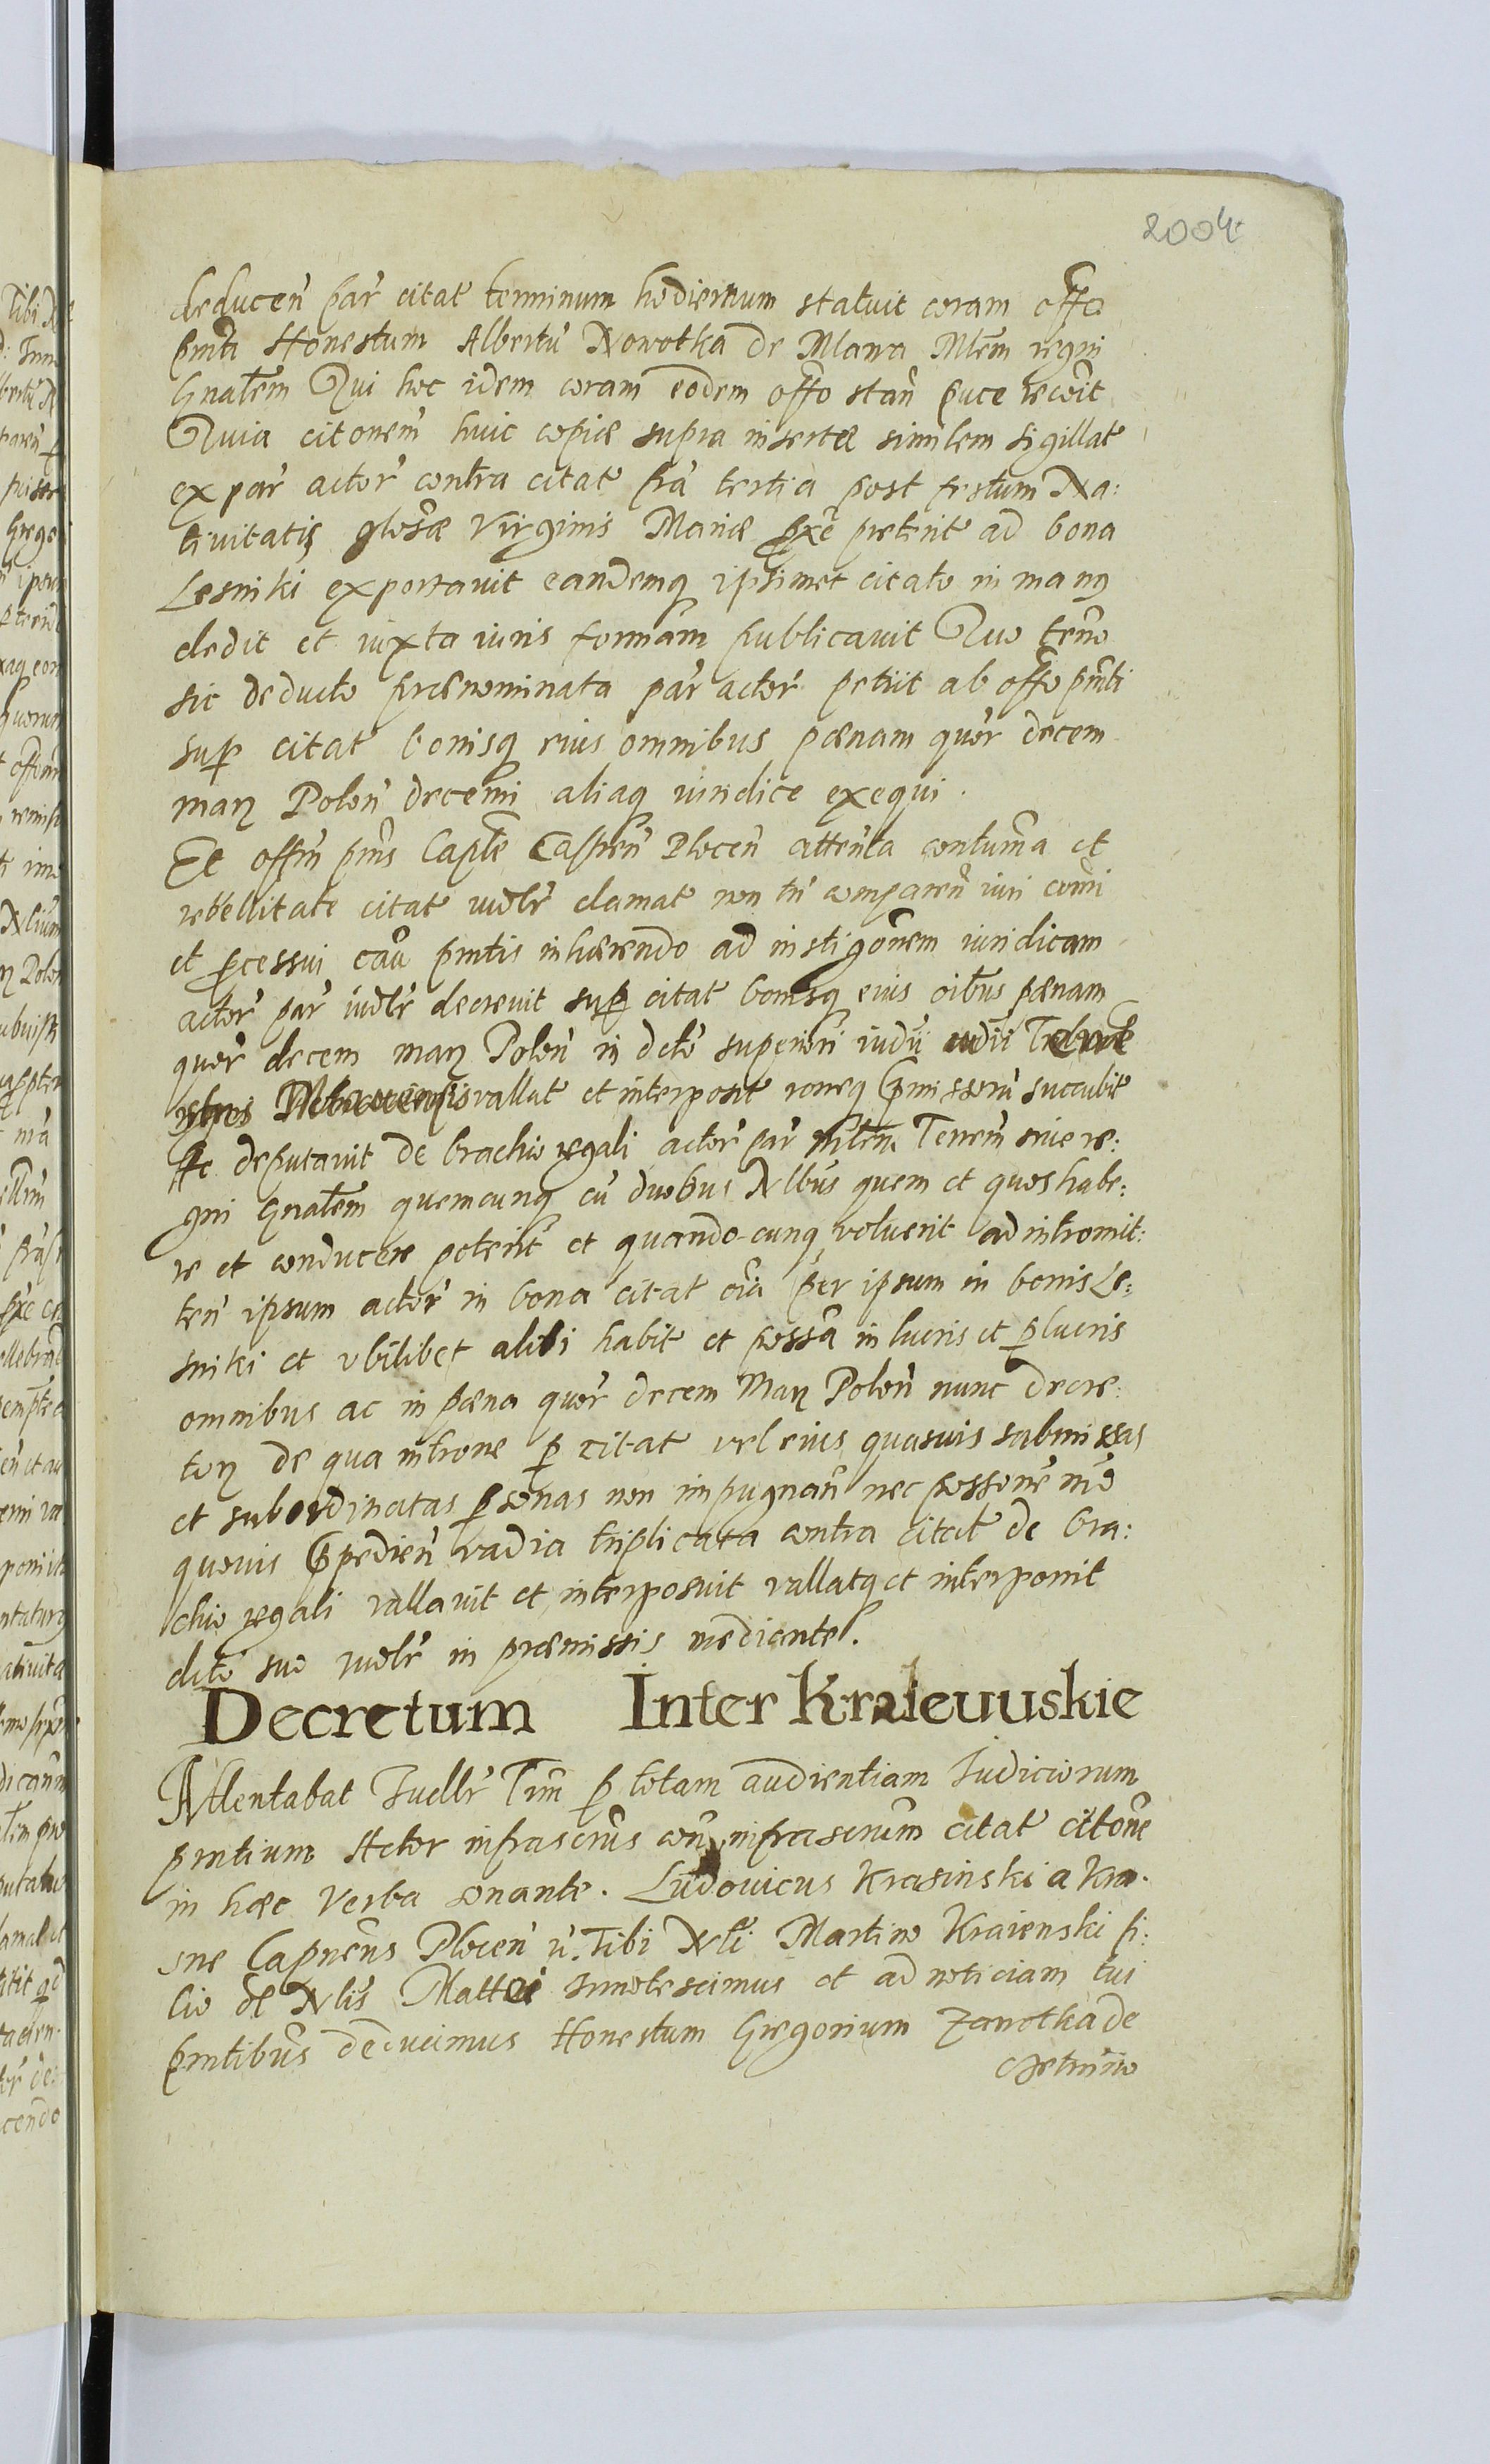 2004
deducen par citat terminum hodiernum statuit coram offo
pnti Honestum Albertu Nowotka de Mlawa Mlem regni
Gnalem Qui hoc idem coram eodem offo stan puce recoit
Quia citonem huic copiæ supra insertæ similem sigillat
ex par actor contra citat fra tertia post festum Na:
tivitatis glosæ Virginis Mariæ pxe preterit ad bona
Lesniki exportavit eandemq ipsimet citato in manq
dedit et iuxta iuris formam publicavit Quo termo
sic deducto prænominata par actor petiit ab offo pnti
sup citat bonisq eius omnibus pænam quor decem
marz Polon decerni aliaq iuridice exequi.
Et offm pns Caple Castren Plocen attenta contuma et
rebellitate citat iudlr clamat non tn comparen iuri comi
et pcessui cau pntis inhærendo ad instigonem iuridicam
actor par iudlr decrevit sup citat bonisq eius oibus pænam
quor decem marz Polon in deto superiori iudii
vallat et interposit roneq pmissoru succubit
Ac deputavit de brachio regali actor par Mlem Terrem sive re:
gni Gnalem quemcunq cu duobus Nlbus quem et quos habe:
re et conducere poterit et quando cunq voluerit ad intromit:
ten ipsum actor in bona citat oia per ipsum in bonis Le:
sniki et ubilibet alibi habit et possa in lucris et plucris
omnibus ac in pæna quor decem Marz Polon nunc decre:
torz de qua introne p citat vel eius quasuis submissas
et subordinatas psonas non impugnan nec possone mo
quouis Ppedien vadia triplicata contra citat de bra:
chio regali vallavit et interposuit vallatq et interponit
dcto suo iudlr in præmissis mediante.
Decretum Inter Kraievuskie
Attentabat Iudlr Tim p totam audientiam Iudiciorum
pntium Actor infrascrus con infrascrum citat citone
in hæc verba sonante. Ludovicus Krasinski a Kra.
sne Capnens Plocen u. Tibi Nli Martino Kraienski fi:
lio ol Nlis Mattei Innotescimus et ad noticiam tui
pntibus deducimus Honestum Gregorium Zanotka de